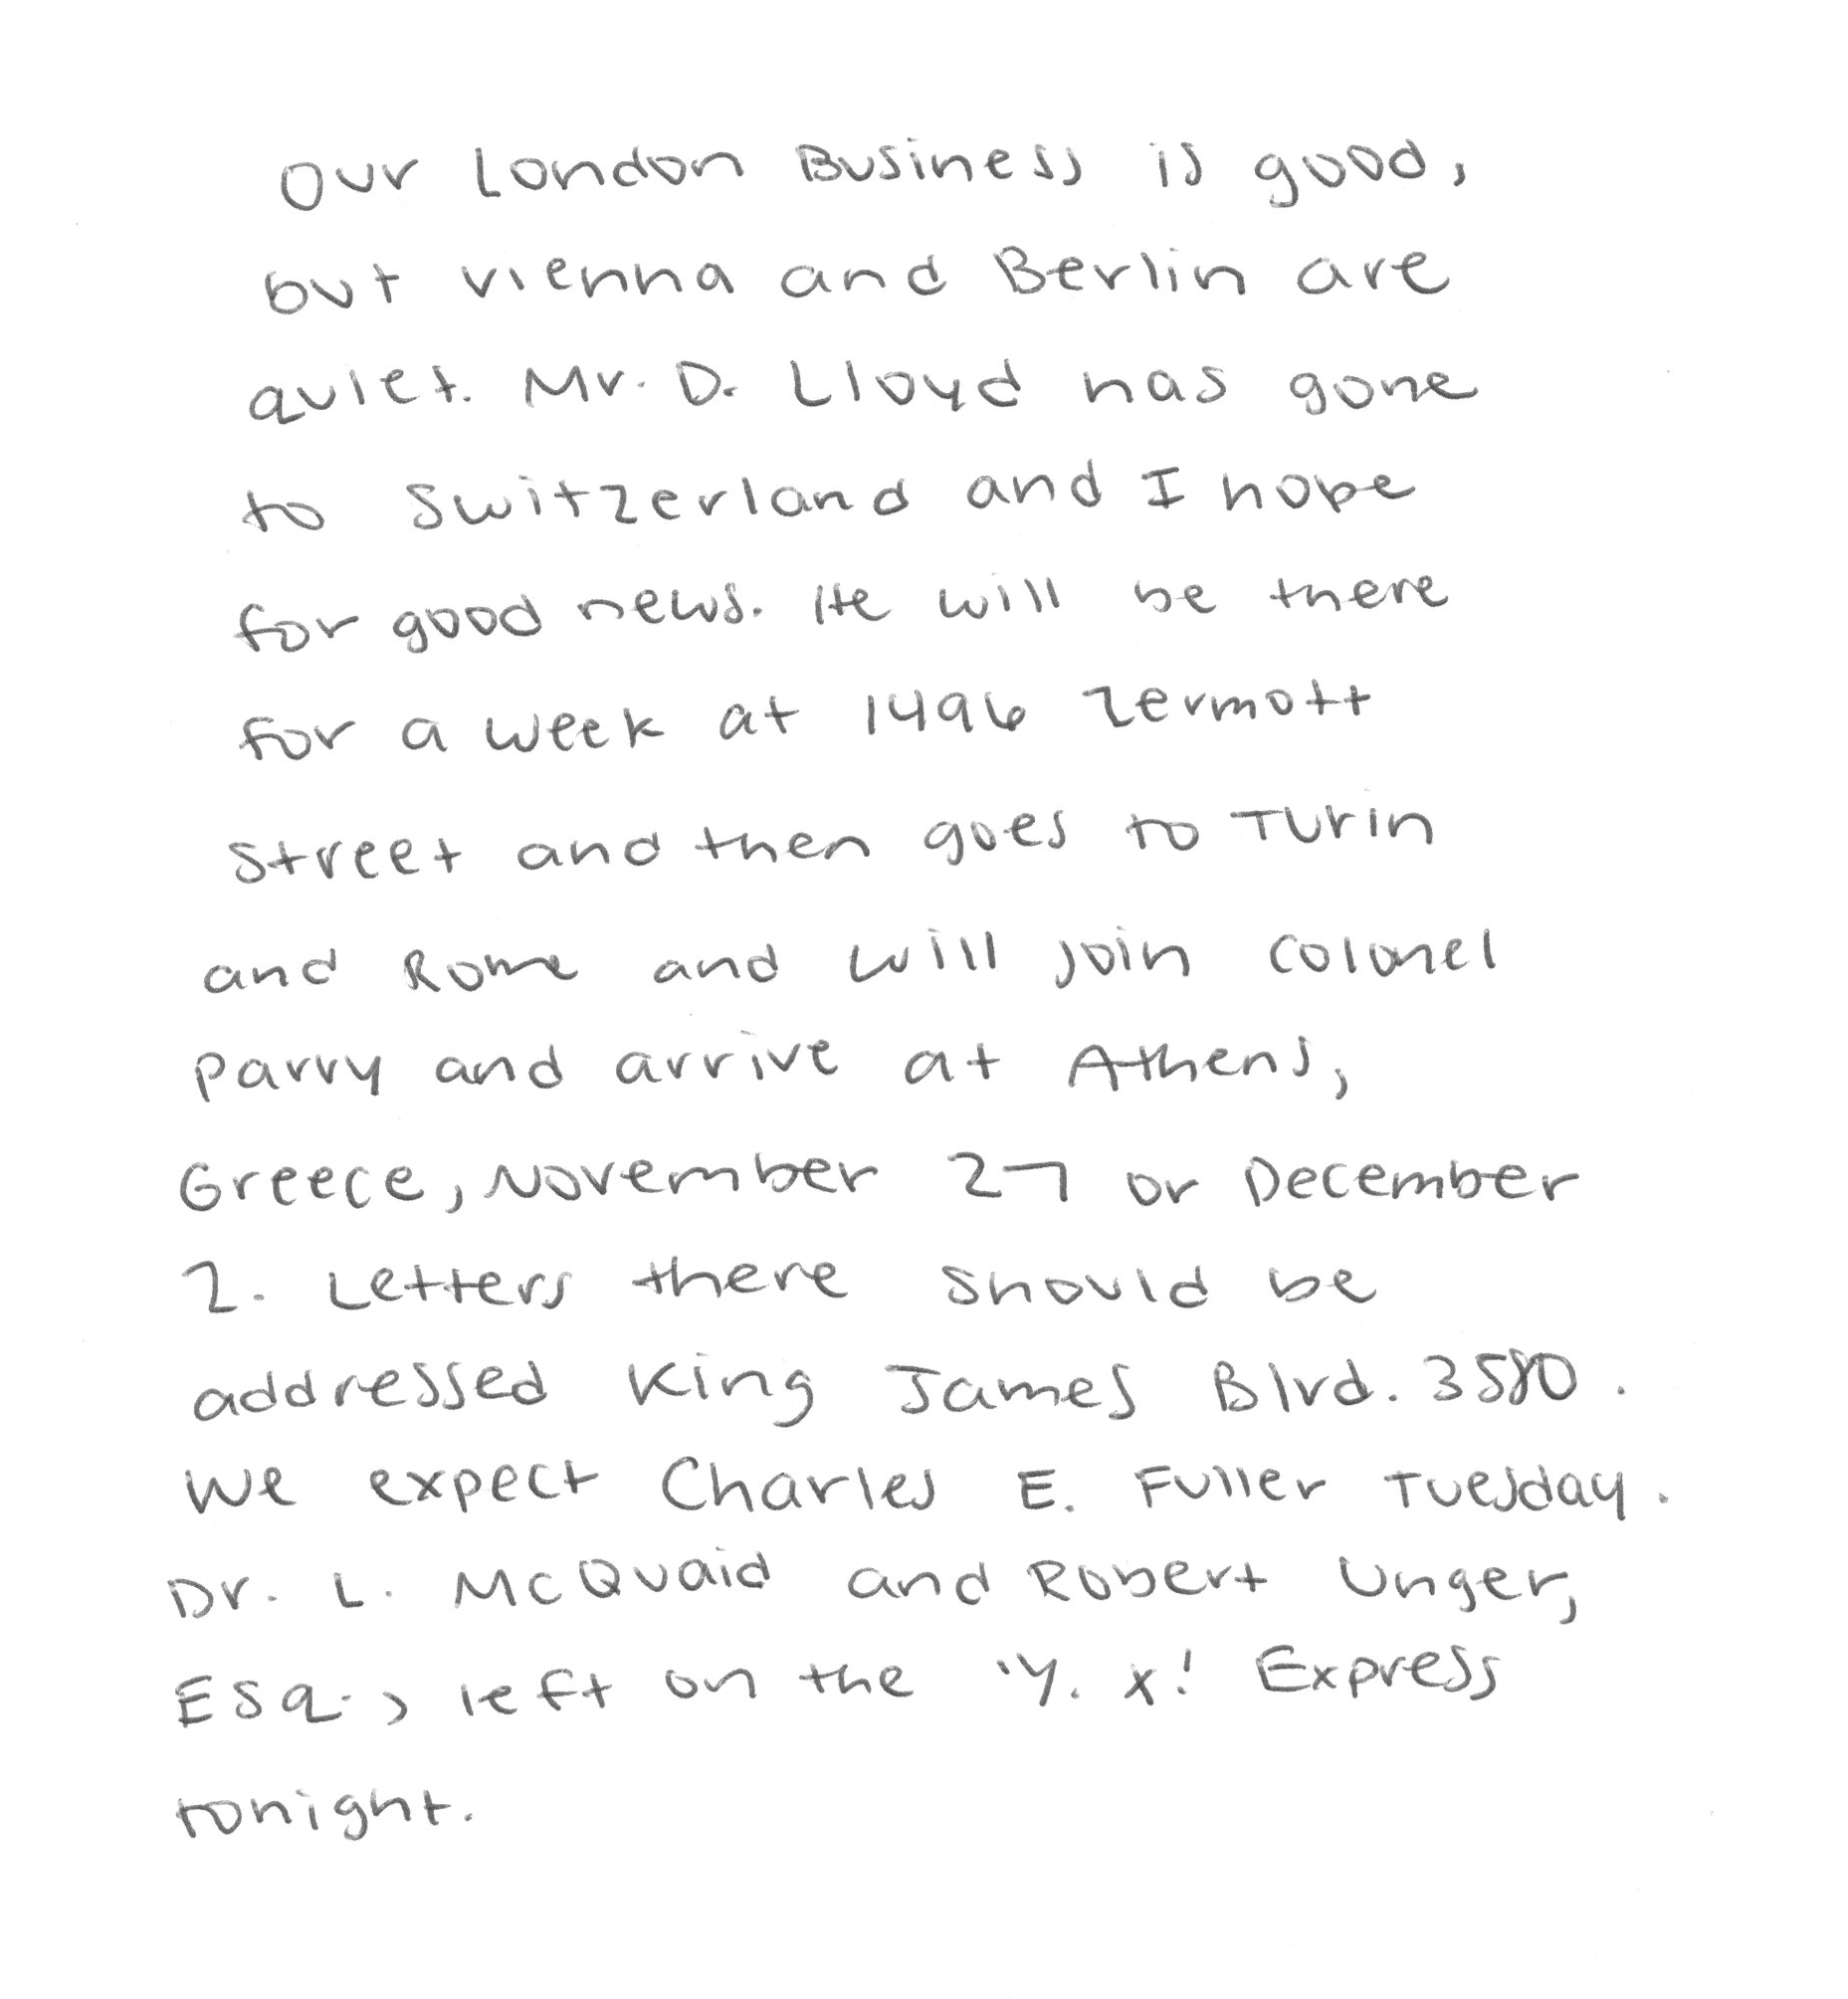 Our London Business is good,
but vienna and Berlin are
quiet. Mr. D. Lloyd has gone
to Switzerland and I hope
for good news. He will be there
for a week at 1496 Zermott
Street and then goes to Turin
and Rome and will join Colonel
Parry and arrive at Athens,
Greece, November 27 or December
2. Letters there should be
addressed King James Blvd. 3580.
We expect Charles E. Fuller Tuesday.
Dr. L. McQuaid and Robert Unger,
Esq., left on the 'Y. X.' Express
tonight.